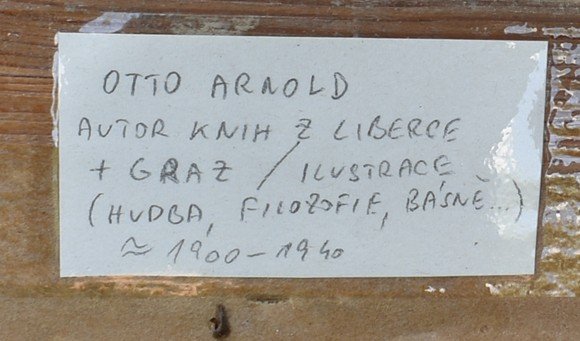 OTTO ARNOLD
AUTOR KNIH Z LIBERCE
+ GRAZ / ILUSTRACE
(HUDBA, FILOZOFIE, BÁSNĚ...)
≈ 1900-1940